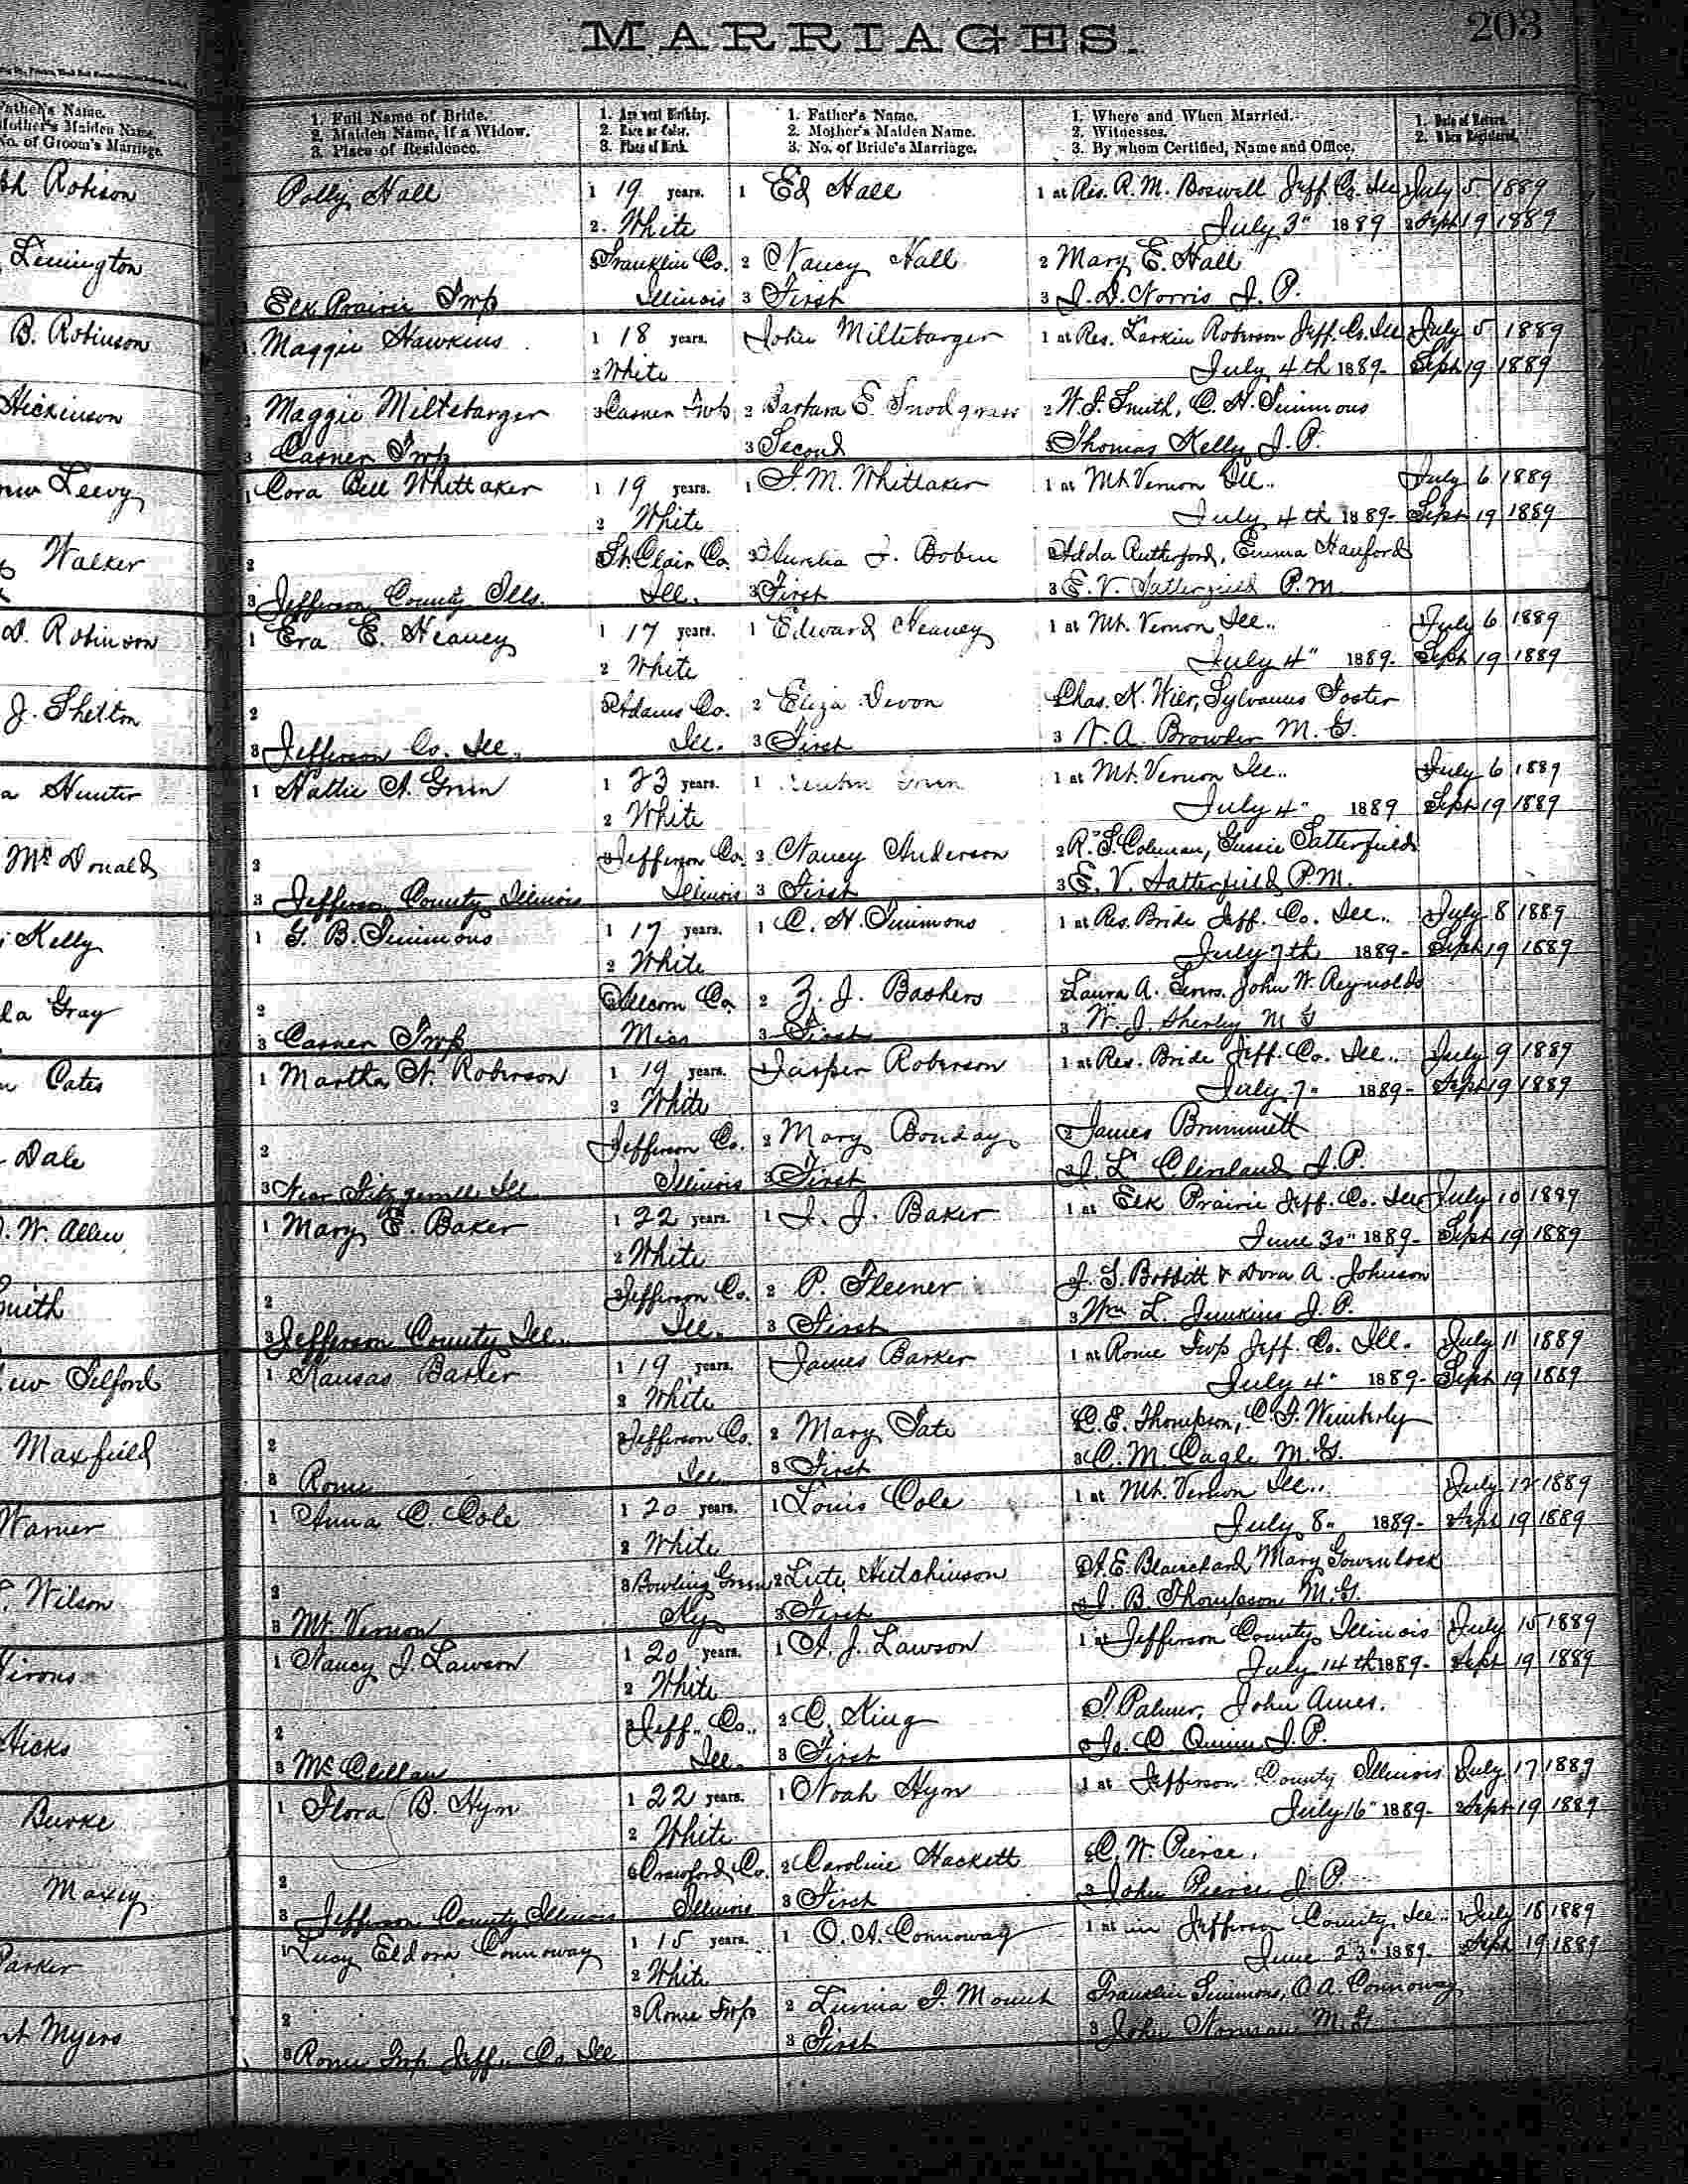 MARRIAGES.
203
Father's Name.
Mother's Maiden Name.
No. of Groom's Marriage.
1. Full Name of Bride.
2. Maiden Name, if a Widow.
3. Place of Residence.
1. Age next Birthday.
2. Race or Color.
3. Place of Birth.
1. Father's Name.
2. Mother's Maiden Name.
3. No. of Bride's Marriage.
1. Where and When Married.
2. Witnesses.
3. By whom Certified, Name and Office.
1. Date of Return.
2. When Registered.
Robison
Polly Hall 1 19 years. 1 Ed Hall 1 at Res. R. M. Boswell Jeff. Co. Ill July 5 1889
2. White July 3" 1889 2 Sept 19 1889
Lenington
3 Franklin Co. 2 Nancy Hall 2 Mary E. Hall
Elk Prairie Twp Illinois 3 First 3 J. D. Norris J. P.
B. Robinson
1 Maggie Hawkins 1 18 years. John Miltebarger 1 at Res. Larkin Roberson Jeff. Co. Ill July 5 1889
2 White July 4th 1889- Sept 19 1889
Hickinson
2 Maggie Miltebarger 3 Casner Twp 2 Barbara E. Snodgrass 2 W. F. Smith, C. H. Simmons
3 Casner Twp 3 Second 3 Thomas Kelly J. P.
Leevy
1 Cora Bell Whittaker 1 19 years. 1 F. M. Whittaker 1 at Mt. Vernon Ill.. July 6 1889
2 White July 4th 1889- Sept 19 1889
Walker
2 St. Clair Co. 2 Aurelia J. Adda Rutherford, Emma Hanford
3 Jefferson County Ills. Ill. 3 First 3 E. V. Satterfield P.M.
D. Robinson
1 Era E. Neaney 1 17 years. 1 Edward Neaney 1 at Mt. Vernon Ill.. July 6 1889
2 White July 4" 1889- Sept 19 1889
J. Shelton
2 3 Adams Co. 2 Eliza Devon Chas. H. Wier, Sylvanus Foster
3 Jefferson Co. Ill. Ill. 3 First 3 N. A. Browder M. G.
Hunter
1 Hattie A. Green 1 23 years. 1 Green 1 at Mt. Vernon Ill.. July 6 1889
2 White July 4" 1889 Sept 19 1889
McDonald
2 3 Jefferson Co. 2 Nancy Anderson 2 R. S. Coleman, Gussie Satterfield
3 Jefferson County Illinois Illinois 3 First 3 E. V. Satterfield P.M.
Kelly
1 G. B. Simmons 1 17 years. 1 C. H. Simmons 1 at Res. Bride Jeff. Co. Ill.. July 8 1889
2 White July 7th 1889- Sept 19 1889
Gray
2 Co. 2 Z. J. Bashers Laura A. John W. Reynolds
3 Casner Twp Miss 3 First 3 W. J. Sherley M G
Cates
1 Martha A. Roberson 1 19 years. Jasper Roberson 1 at Res. Bride Jeff. Co. Ill.. July 9 1889
2 White July 7" 1889- Sept 19 1889
Dale
2 Jefferson Co. 2 Mary Bonday 2 James Brummett
3 Near Fitzgerrell Ill Illinois 3 First 3 J. L. Cleveland J. P.
W. Allen
1 Mary E. Baker 1 22 years. 1 J. J. Baker 1 at Elk Prairie Jeff. Co. Ill July 10 1889
2 White June 30" 1889- Sept 19 1889
Smith
2 3 Jefferson Co. 2 P. Fleener J. S. Bobbitt & Dora A. Johnson
3 Jefferson County Ill.. Ill. 3 First 3 Wm. L. Junkins J. P.
Telford
1 Kansas Barker 1 19 years. James Barker 1 at Rome Twp Jeff. Co. Ill. July 11 1889
2 White July 4" 1889- Sept 19 1889
Maxfield
2 3 Jefferson Co. 2 Mary Tate C. E. Thompson, C. F. Wimberly
3 Rome Ill 3 First 3 C. M. Cagle M. G.
Warner
1 Anna C. Cole 1 20 years. 1 Louis Cole 1 at Mt. Vernon Ill.. July 12 1889
2 White July 8" 1889- Sept 19 1889
Wilson
2 3 Bowling Green 2 Lute Hutchinson A. E. Blanchard, Mary Gowenlock
3 Mt. Vernon Ky 3 First 3 J. B. Thompson M. G.
1 Nancy J. Lawson 1 20 years. 1 A. J. Lawson 1 at Jefferson County Illinois July 15 1889
2 White July 14th 1889- Sept 19 1889
Hicks
2 3 Jeff. Co.. 2 C. King T. Palmer, John Ames.
3 McClellan Ill. 3 First 3 Jo. C. Quinn J. P.
Burke
1 Flora B. Hym 1 22 years. 1 Noah Hym 1 at Jefferson County Illinois July 17 1889
2 White July 16" 1889- 2 Sept 19 1889
Maxey
2 3 Crawford Co. 2 Caroline Hackett 2 C. W. Pierce.
3 Jefferson County Illinois Illinois 3 First 3 John Pierce J. P.
Parker
1 Lucy Eldora Connoway 1 15 years. 1 O. A. Connoway 1 at in Jefferson County, Ill.. 1 July 18 1889
2 White June 23" 1889- 2 Sept 19 1889
Myers
2 3 Rome Twp 2 F. Franklin Simmons, O. A. Connoway
3 Rome Twp Jeff. Co Ill 3 First 3 John Norman M. G.